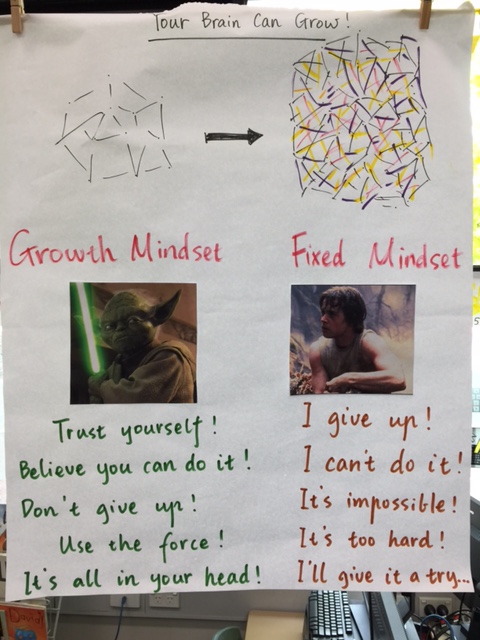 Your Brain Can Grow!
Growth Mindset
Trust yourself!
Believe you can do it!
Don't give up!
Use the force!
It's all in your head!
Fixed Mindset
I give up!
I can't do it!
It's impossible!
It's too hard!
I'll give it a try...